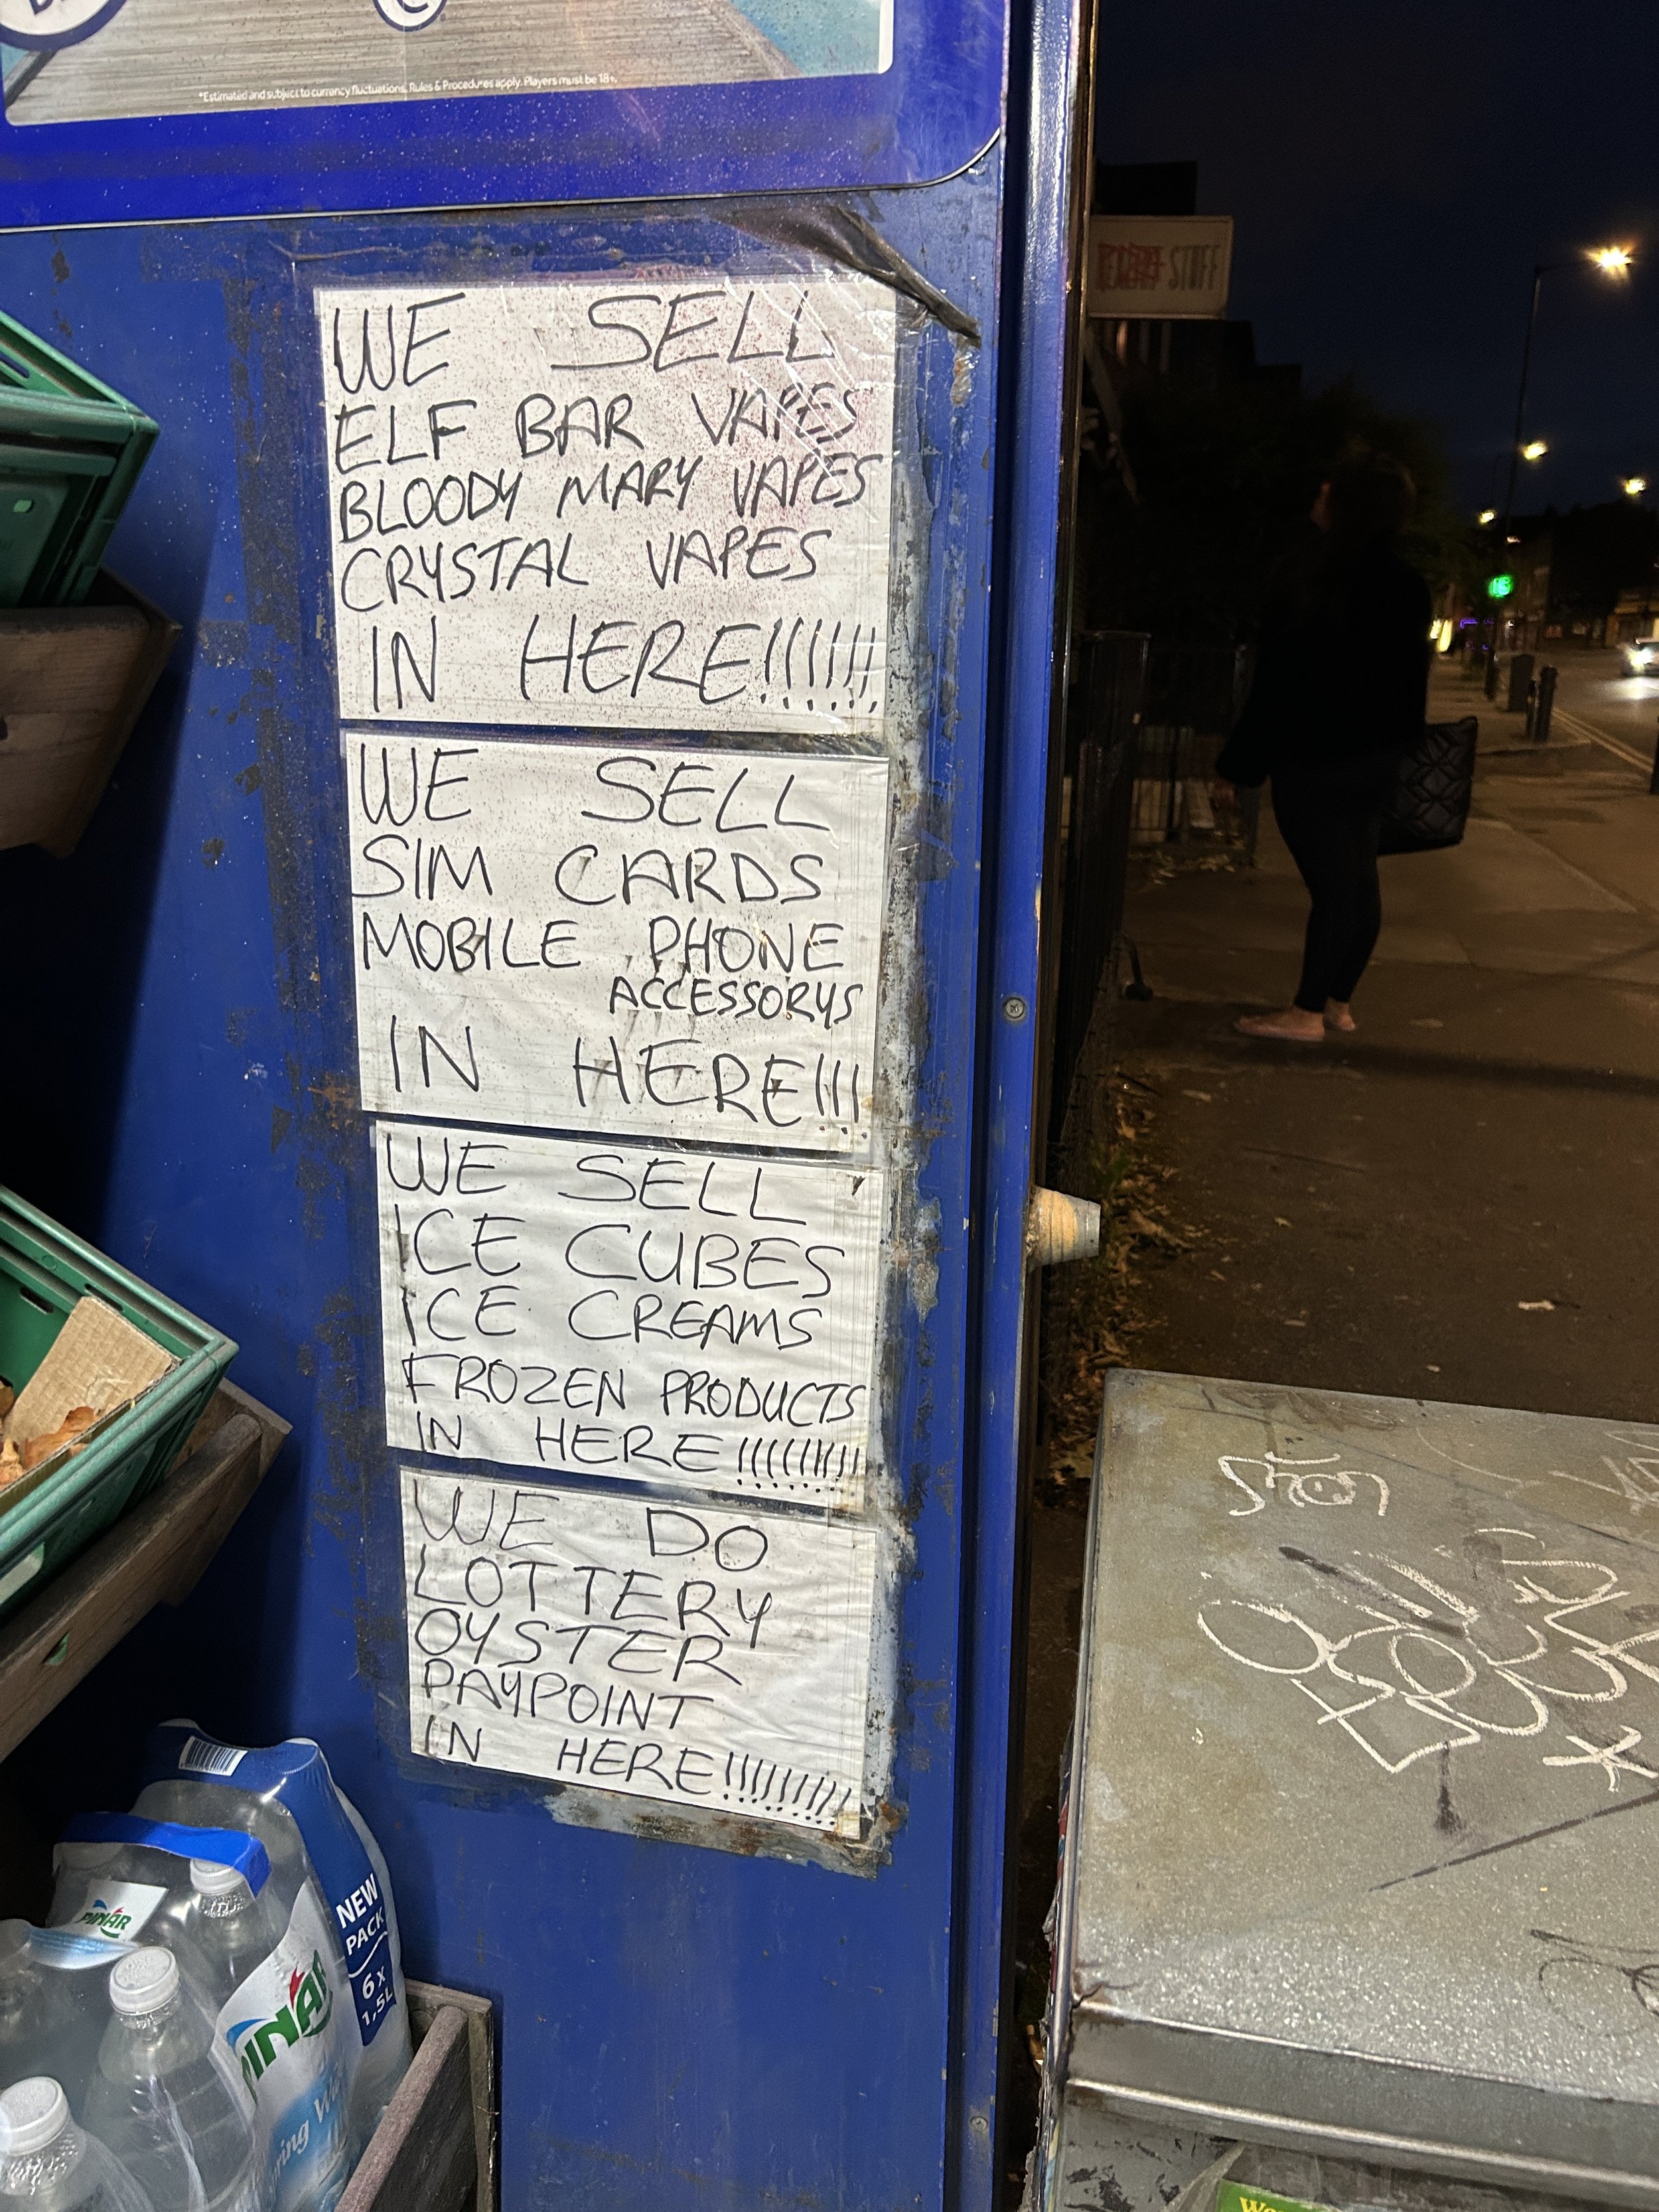 *Estimated and subject to currency fluctuations. Rules & Procedures apply. Players must be 18+.
WE SELL
ELF BAR VAPES
BLOODY MARY VAPES
CRYSTAL VAPES
IN HERE!!!!!!
WE SELL
SIM CARDS
MOBILE PHONE
ACCESSORYS
IN HERE!!!
WE SELL
ICE CUBES
ICE CREAMS
FROZEN PRODUCTS
IN HERE!!!!!!!!!
WE DO
LOTTERY
OYSTER
PAYPOINT
IN HERE!!!!!!!!!
STUFF
NEW
PACK
6 x
1,5L
PINAR
PINAR